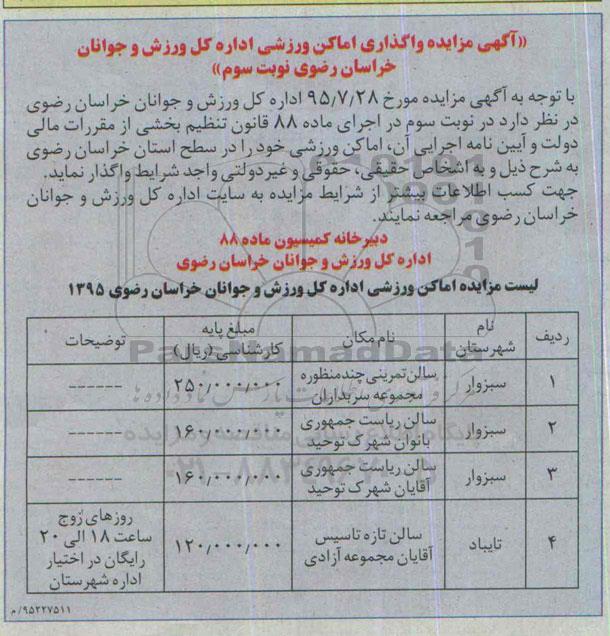 «آگهی مزایده واگذاری اماکن ورزشی اداره کل ورزش و جوانان
خراسان رضوی نوبت سوم»
با توجه به آگهی مزایده مورخ ۹۵/۷/۲۸ اداره کل ورزش و جوانان خراسان رضوی
در نظر دارد در نوبت سوم در اجرای ماده ۸۸ قانون تنظیم بخشی از مقررات مالی
دولت و آیین نامه اجرایی آن، اماکن ورزشی خود را در سطح استان خراسان رضوی
به شرح ذیل و به اشخاص حقیقی، حقوقی و غیردولتی واجد شرایط واگذار نماید.
جهت کسب اطلاعات بیشتر از شرایط مزایده به سایت اداره کل ورزش و جوانان
خراسان رضوی مراجعه نمایند.
دبیرخانه کمیسیون ماده ۸۸
اداره کل ورزش و جوانان خراسان رضوی
لیست مزایده اماکن ورزشی اداره کل ورزش و جوانان خراسان رضوی ۱۳۹۵
ردیف نام شهرستان نام مکان مبلغ پایه کارشناسی (ریال) توضیحات
۱ سبزوار سالن تمرینی چندمنظوره مجموعه سربداران ۲۵۰/۰۰۰/۰۰۰ ------
۲ سبزوار سالن ریاست جمهوری بانوان شهرک توحید ۱۶۰/۰۰۰/۰۰۰ ------
۳ سبزوار سالن ریاست جمهوری آقایان شهرک توحید ۱۶۰/۰۰۰/۰۰۰ ------
۴ تایباد سالن تازه تاسیس آقایان مجموعه آزادی ۱۲۰/۰۰۰/۰۰۰ روزهای زوج
ساعت ۱۸ الی ۲۰
رایگان در اختیار
اداره شهرستان
۹۵۲۲۷۵۱۱/م
ParsNamadData